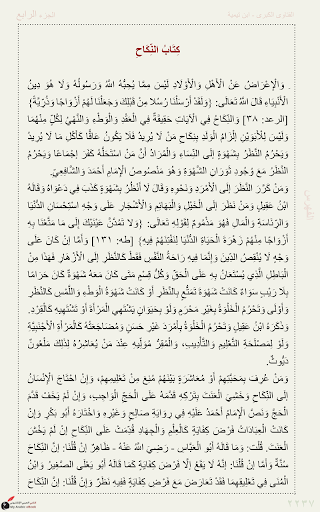 الفتاوى الكبرى - ابن تيمية
الجزء الرابع
كِتَابُ النِّكَاحِ
. وَالْإِعْرَاضُ عَنْ الْأَهْلِ وَالْأَوْلَادِ لَيْسَ مِمَّا يُحِبُّهُ اللَّهُ وَرَسُولُهُ وَلَا هُوَ دِينُ
الْأَنْبِيَاءِ قَالَ اللَّهُ تَعَالَى: {وَلَقَدْ أَرْسَلْنَا رُسُلًا مِنْ قَبْلِكَ وَجَعَلْنَا لَهُمْ أَزْوَاجًا وَذُرِّيَّةً}
[الرعد: ٣٨] وَالنِّكَاحُ فِي الْآيَاتِ حَقِيقَةٌ فِي الْعَقْدِ وَالْوَطْءِ وَالنَّهْيُ لِكُلٍّ مِنْهُمَا
وَلَيْسَ لِلْأَبَوَيْنِ إلْزَامُ الْوَلَدِ بِنِكَاحِ مَنْ لَا يُرِيدُ فَلَا يَكُونُ عَاقًّا كَأَكْلِ مَا لَا يُرِيدُ
وَيَحْرُمُ النَّظَرُ بِشَهْوَةٍ إلَى النِّسَاءِ وَالْمُرَادُ أَنَّ مَنْ اسْتَحَلَّهُ كَفَرَ إجْمَاعًا وَيَحْرُمُ
النَّظَرُ مَعَ وُجُودِ ثَوَرَانِ الشَّهْوَةِ وَهُوَ مَنْصُوصُ الْإِمَامِ أَحْمَدَ وَالشَّافِعِيِّ.
وَمَنْ كَرَّرَ النَّظَرَ إلَى الْأَمْرَدِ وَنَحْوِهِ وَقَالَ لَا أَنْظُرُ بِشَهْوَةٍ كَذَبَ فِي دَعْوَاهُ وَقَالَهُ
ابْنُ عَقِيلٍ وَمَنْ نَظَرَ إلَى الْخَيْلِ وَالْبَهَائِمِ وَالْأَشْجَارِ عَلَى وَجْهِ اسْتِحْسَانِ الدُّنْيَا
وَالرِّئَاسَةِ وَالْمَالِ فَهُوَ مَذْمُومٌ لِقَوْلِهِ تَعَالَى: {وَلا تَمُدَّنَّ عَيْنَيْكَ إِلَى مَا مَتَّعْنَا بِهِ
أَزْوَاجًا مِنْهُمْ زَهْرَةَ الْحَيَاةِ الدُّنْيَا لِنَفْتِنَهُمْ فِيهِ} [طه: ١٣١] وَأَمَّا إنْ كَانَ عَلَى
وَجْهٍ لَا يُنْقِصُ الدِّينَ وَإِنَّمَا فِيهِ رَاحَةُ النَّفْسِ فَقَطْ كَالنَّظَرِ إلَى الْأَزْهَارِ فَهَذَا مِنْ
الْبَاطِلِ الَّذِي يُسْتَعَانُ بِهِ عَلَى الْحَقِّ وَكُلُّ قِسْمٍ مَتَى كَانَ مَعَهُ شَهْوَةٌ كَانَ حَرَامًا
بِلَا رَيْبٍ سَوَاءٌ كَانَتْ شَهْوَةَ تَمَتُّعٍ بِالنَّظَرِ أَوْ كَانَتْ شَهْوَةَ الْوَطْءِ وَاللَّمْسُ كَالنَّظَرِ
وَأَوْلَى وَتَحْرُمُ الْخَلْوَةُ بِغَيْرِ مَحْرَمٍ وَلَوْ بِحَيَوَانٍ يَشْتَهِي الْمَرْأَةَ أَوْ تَشْتَهِيهِ كَالْقِرْدِ.
وَذَكَرَهُ ابْنُ عَقِيلٍ وَتَحْرُمُ الْخَلْوَةُ بِأَمْرَدَ غَيْرِ حَسَنٍ وَمُضَاجَعَتُهُ كَالْمَرْأَةِ الْأَجْنَبِيَّةِ
وَلَوْ لِمَصْلَحَةِ التَّعْلِيمِ وَالتَّأْدِيبِ، وَالْمُقِرُّ مُوَلِّيهِ عِنْدَ مَنْ يُعَاشِرُهُ لِذَلِكَ مَلْعُونٌ
دَيُّوثٌ.
وَمَنْ عُرِفَ بِمَحَبَّتِهِمْ أَوْ مُعَاشَرَةٍ بَيْنَهُمْ مُنِعَ مِنْ تَعْلِيمِهِمْ، وَإِنْ احْتَاجَ الْإِنْسَانُ
إلَى النِّكَاحِ وَخَشِيَ الْعَنَتَ بِتَرْكِهِ قَدَّمَهُ عَلَى الْحَجِّ الْوَاجِبِ، وَإِنْ لَمْ يَخَفْ قَدَّمَ
الْحَجَّ وَنَصَّ الْإِمَامُ أَحْمَدُ عَلَيْهِ فِي رِوَايَةِ صَالِحٍ وَغَيْرِهِ وَاخْتَارَهُ أَبُو بَكْرٍ وَإِنْ
كَانَتْ الْعِبَادَاتُ فَرْضَ كِفَايَةٍ كَالْعِلْمِ وَالْجِهَادِ قُدِّمَتْ عَلَى النِّكَاحِ إنْ لَمْ يَخْشَ
الْعَنَتَ. قُلْت: وَمَا قَالَهُ أَبُو الْعَبَّاسِ - رَضِيَ اللَّهُ عَنْهُ - ظَاهِرٌ إنْ قُلْنَا: إنَّ النِّكَاحَ
سُنَّةٌ وَأَمَّا إنْ قُلْنَا: إنَّهُ لَا يَقَعُ إلَّا فَرْضَ كِفَايَةٍ كَمَا قَالَهُ أَبُو يَعْلَى الصَّغِيرُ وَابْنُ
الْمُنَى فِي تَعْلِيقِهِمَا فَقَدْ تَعَارَضَ مَعَ فَرْضِ كِفَايَةٍ فَفِيهِ نَظَرٌ وَإِنْ قُلْنَا: إنَّ النِّكَاحَ
٢٢٣٧